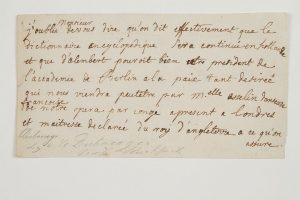 Monsieur
j'oublie de vous dire qu'on dit effectivement que le
dictionnaire encyclopedique sera continué en hollande
et que d'alenbert pouroit bien etre president de
l'academie de Berlin a la paix tant desireé
qui nous viendra peutetre par m.elle
francoise
de notre opera par congé apresent a londres
et maitresse declareé du roy d'angleterre a ce qu'on
assure.